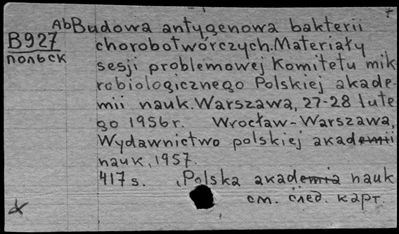 Ab Budowa antygenowa bakterii
B927 chorobotwórczych. Materiały
польск sesji problemowej Komitetu mik
robiologicznego Polskiej akade-
mii nauk. Warszawa, 27-28 lute
go 1956r. Wrocław-Warszawa,
Wydawnictwo polskiej akademii
nauk, 1957.
417 s. Polska akademia nauk
см. след. карт.